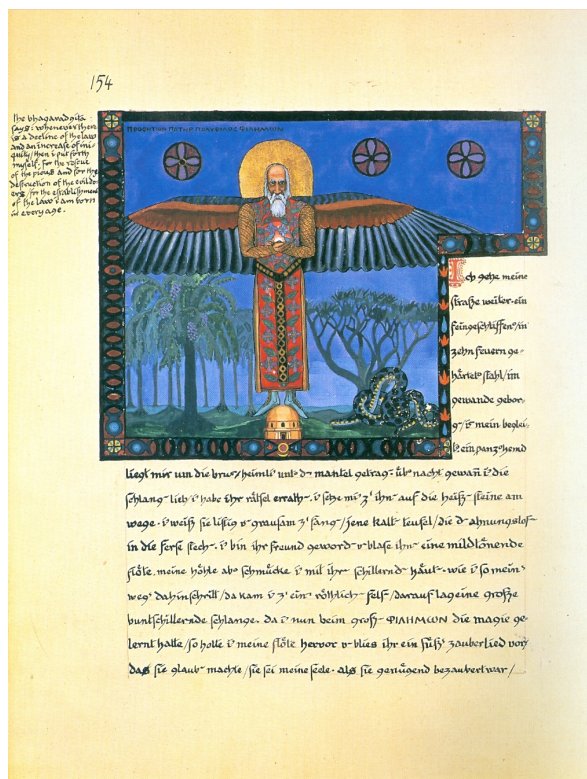 154
the bhagavadgita
says: whenever there
is a decline of the law
and an increase of ini-
quity / then i put forth
myself. for the rescue
of the pious and for the
destruction of the evildo-
ers / for the establishment
of the law i am born
in every age.
ΠΡΟΦΗΤΩΝ ΠΑΤΗΡ ΠΟΛΥΦΙΛΟΣ ΦΙΛΗΜΩΝ
Ich gehe meine
straße weiter. ein
feingeschliffen' / in
zehn feuern ge-
härtet' stahl / im
gewande gebor-
g' / ist mein beglei-
ein panz'hemd
liegt mir um die brust / heimli' unt' d' mantel getrag'. üb' nacht gewañ i' die
schlang' lieb i' habe ihr rätsel errath'. i' setze mi' z' ihn' auf die heiß' steine am
wege. i' weiß sie listig u' grausam z' fang' / jene kalt' teufel / die d' ahnungslos'
in die ferse stech'. i' bin ihr freund geword' u' blase ihn' eine mildtönende
flöte. meine höhle ab' schmücke i' mit ihr' schillernd' häut'. wie i' so mein'
weg' dahinschritt / da kam i' z' ein' röthlich' fels' / darauf lag eine große
buntschillernde schlange. da i' nun beim groß' ΦΙΛΗΜΩΝ die magie ge-
lernt hatte / so holte i' meine flöte hervor u' blies ihr ein süß' zauberlied vor /
das sie glaub' machte / sie sei meine seele. als sie genügend bezaubert war /